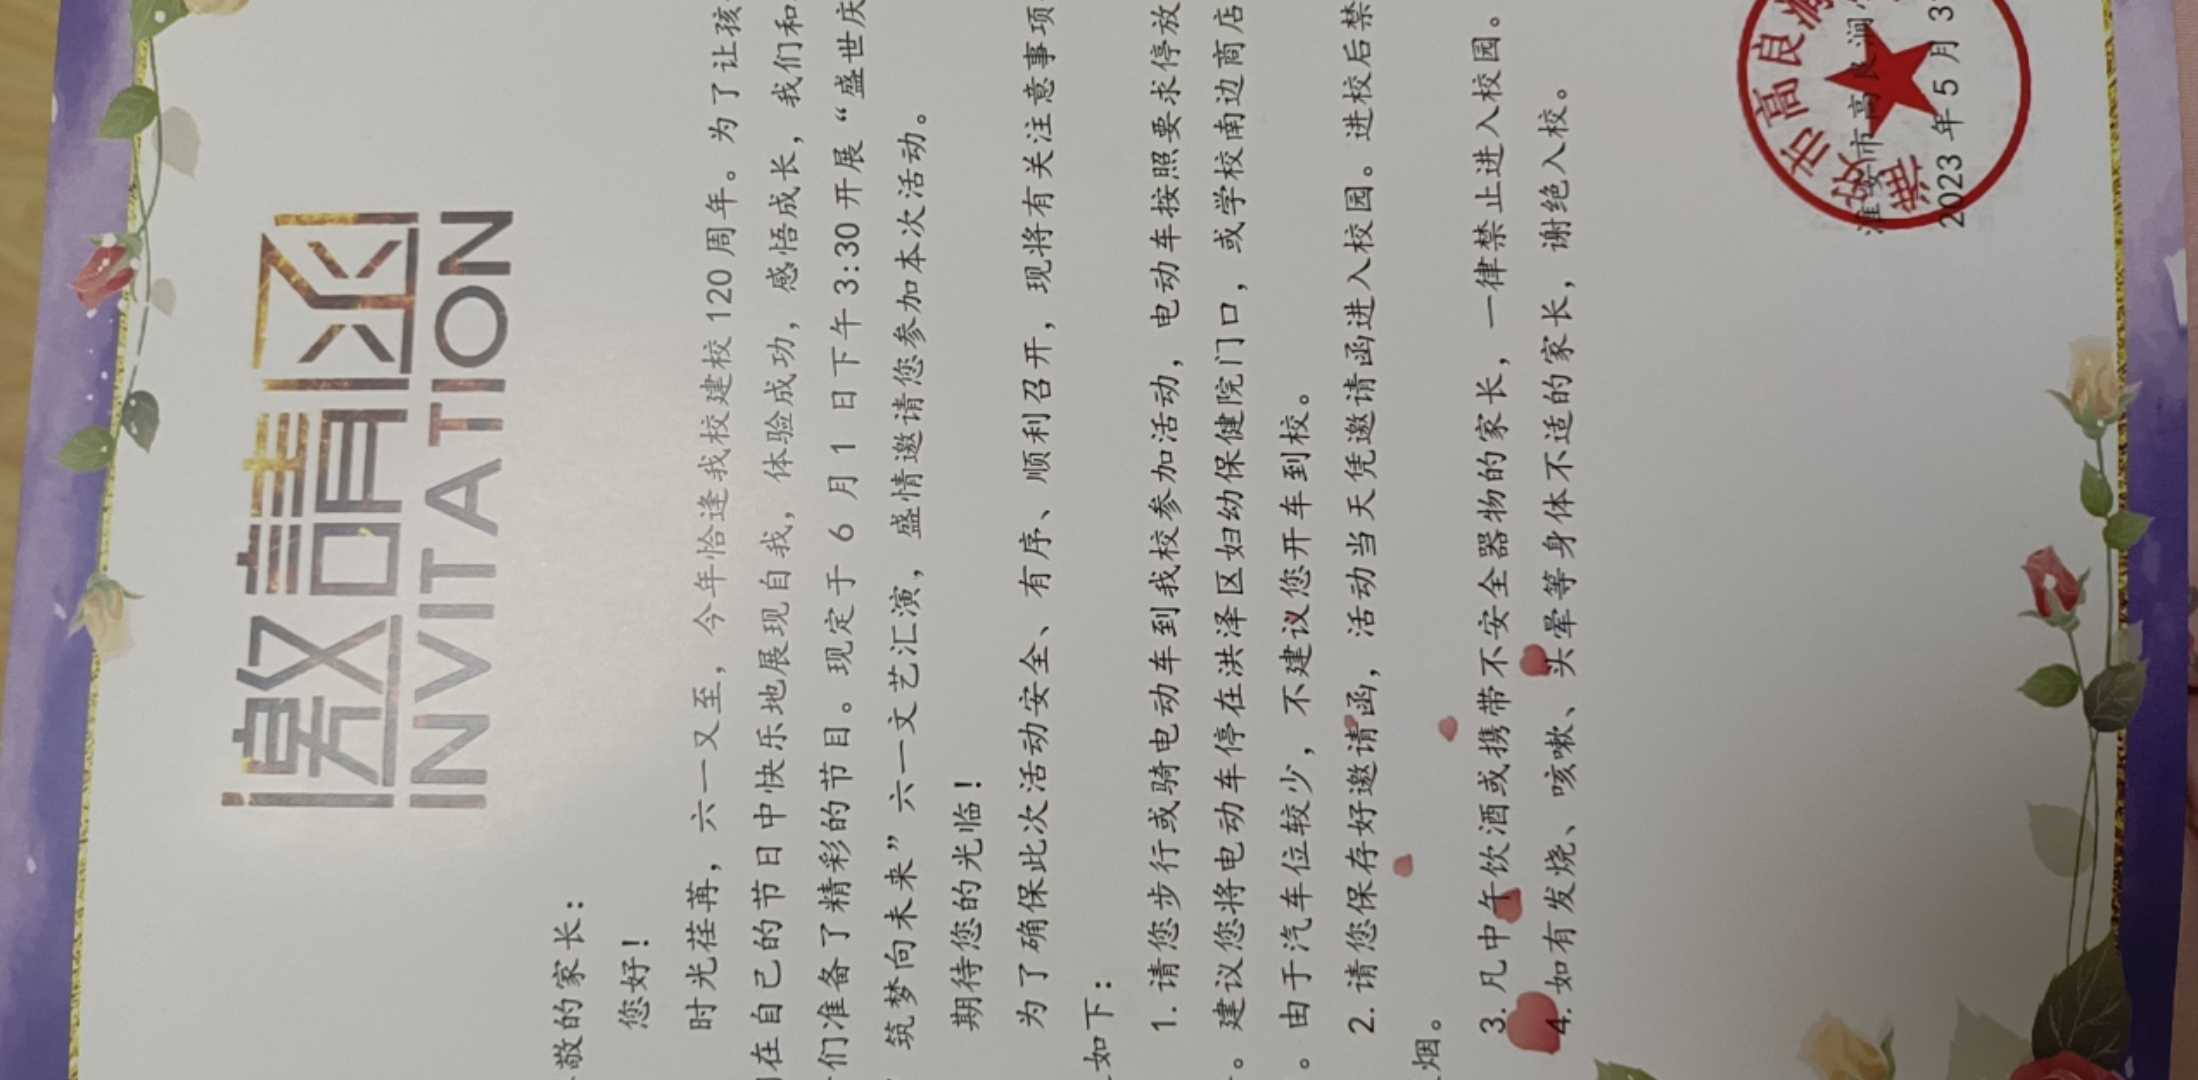 邀请函
INVITATION
敬的家长：
您好！
时光荏苒，六一又至，今年恰逢我校建校120周年。为了让孩
在自己的节日中快乐地展现自我，体验成功，感悟成长，我们和
们准备了精彩的节目。现定于6月1日下午3:30开展“盛世庆
筑梦向未来”六一文艺汇演，盛情邀请您参加本次活动。
期待您的光临！
为了确保此次活动安全、有序、顺利召开，现将有关注意事项
如下：
1.请您步行或骑电动车到我校参加活动，电动车按照要求停放
。建议您将电动车停在洪泽区妇幼保健院门口，或学校南边商店
。由于汽车位较少，不建议您开车到校。
2.请您保存好邀请函，活动当天凭邀请函进入校园。进校后禁
烟。
3.凡中午饮酒或携带不安全器物的家长，一律禁止进入校园。
4.如有发烧、咳嗽、头晕等身体不适的家长，谢绝入校。
淮安市高良涧
2023年5月3
市高良涧